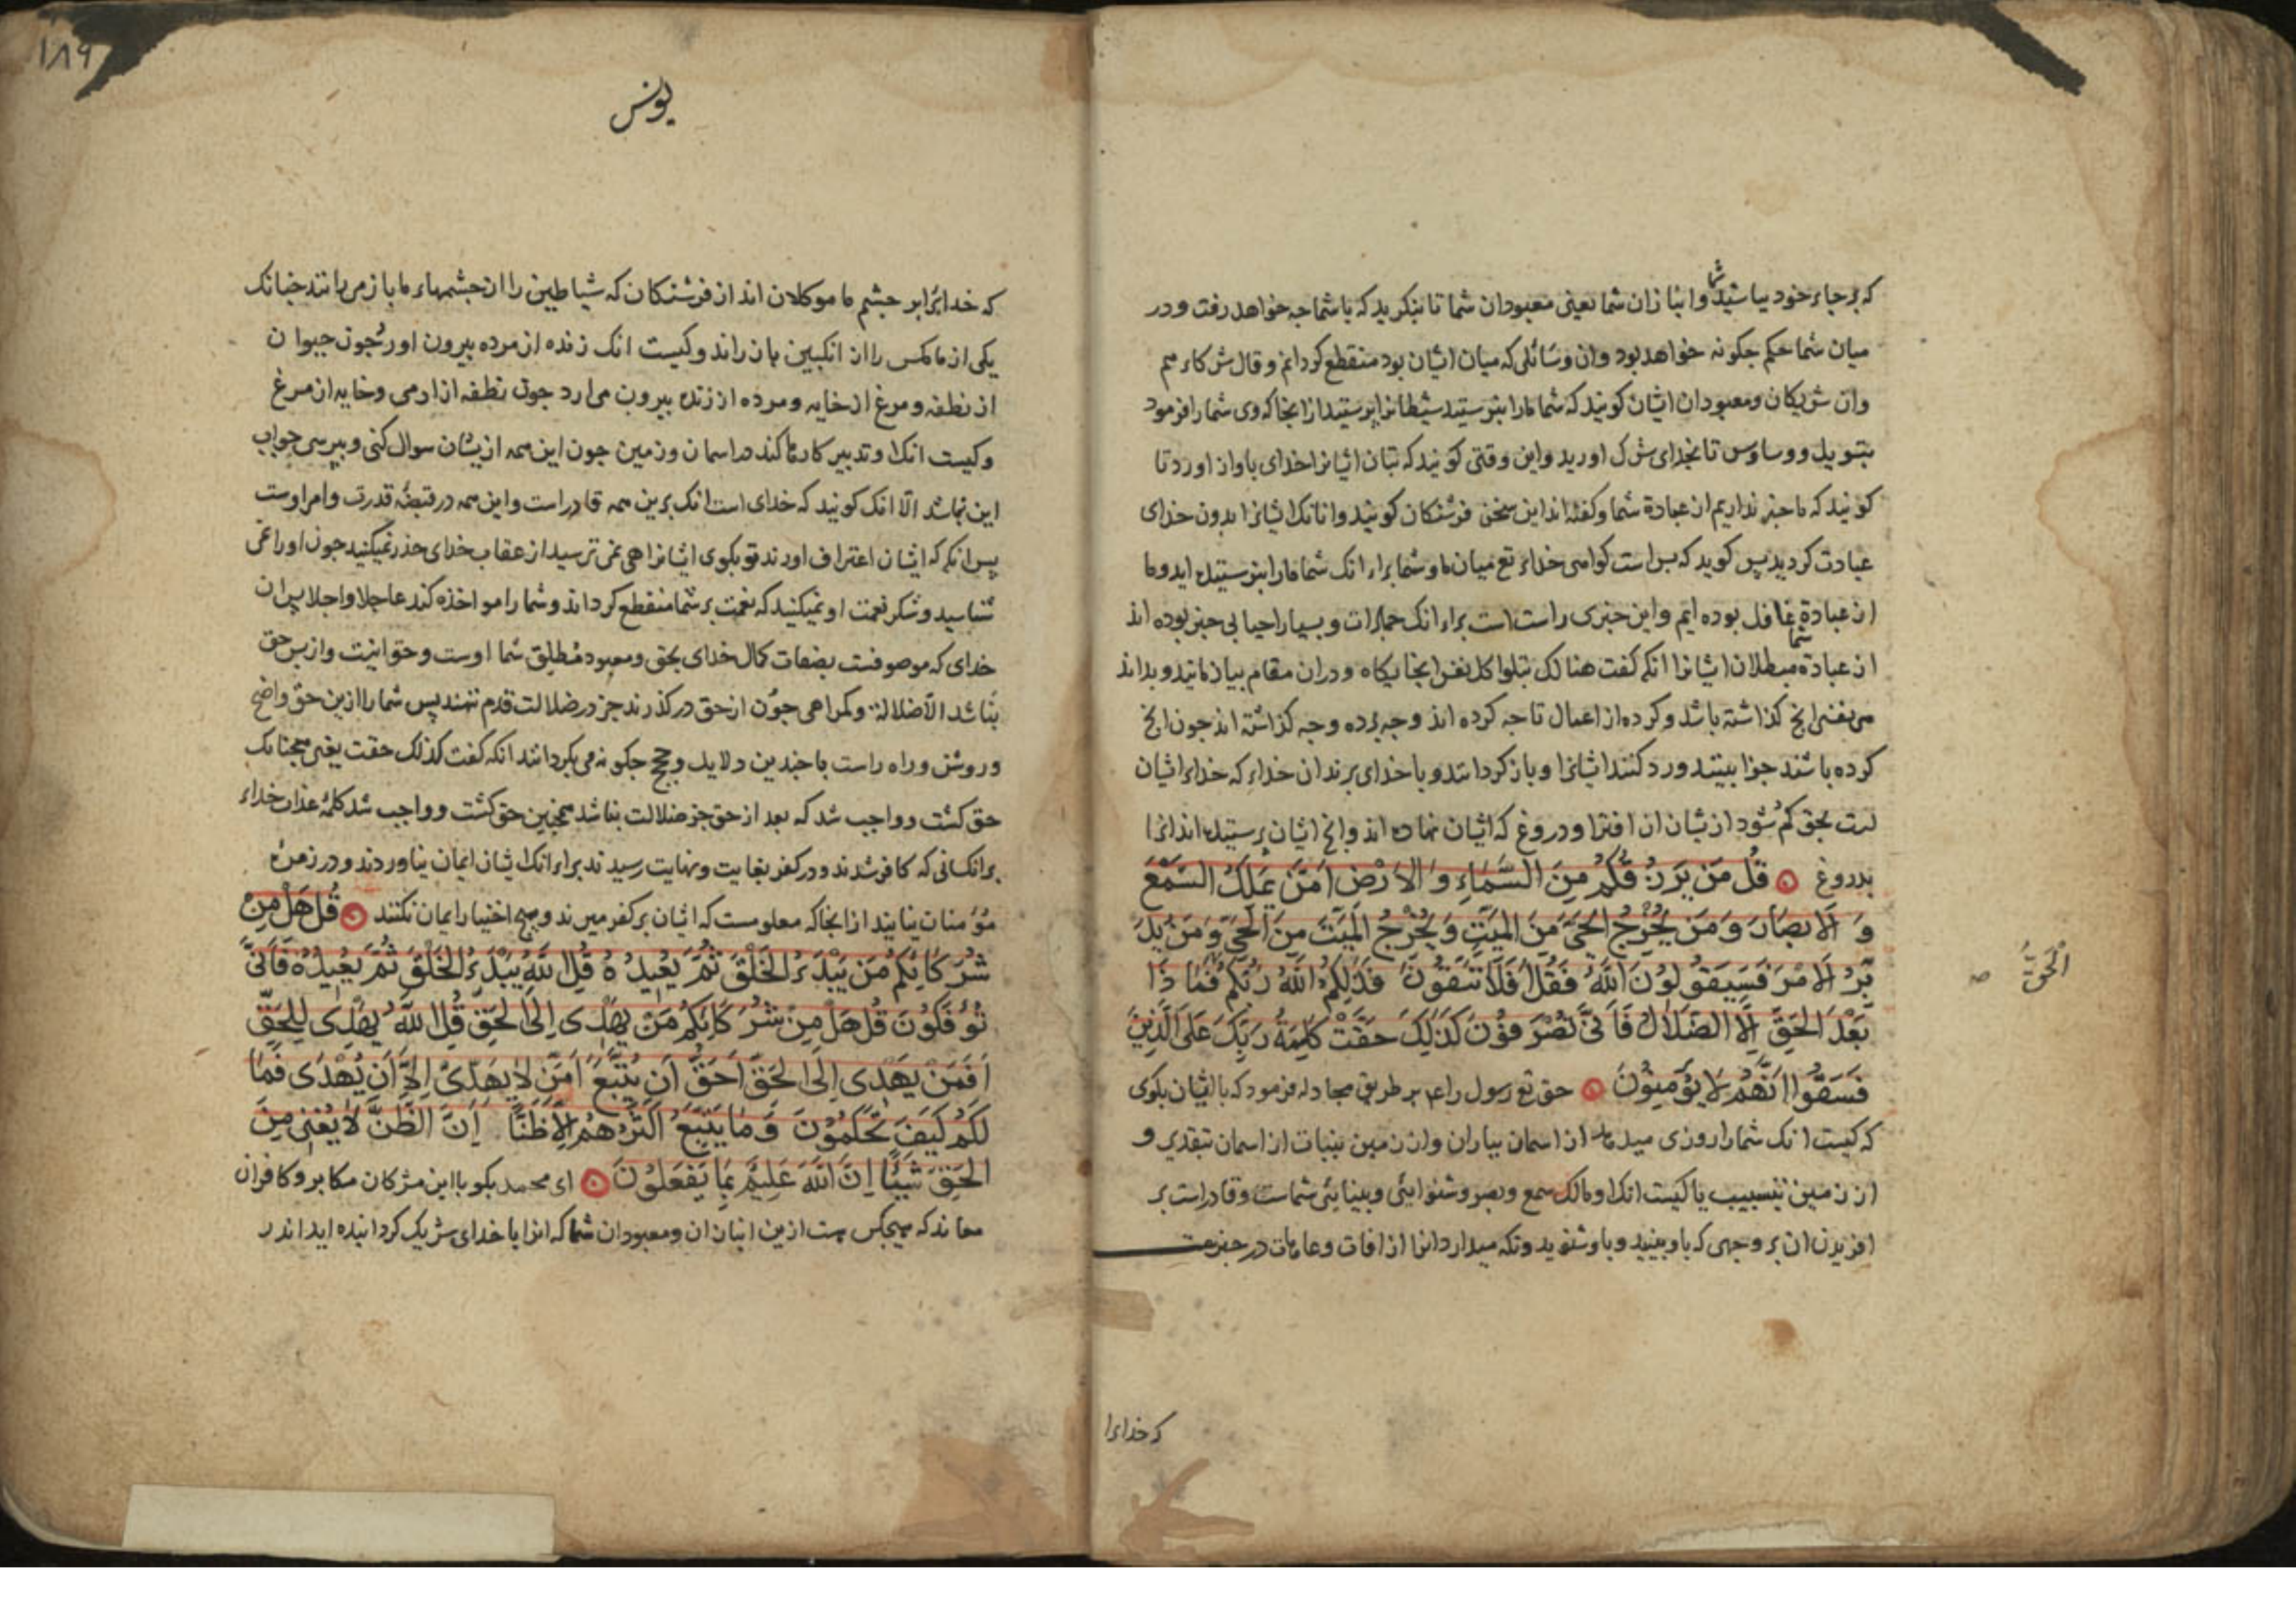 که بر جاء خود بباشید شما وانبازان شما یعنی معبودان شما تا بنکرید که با شما جه خواهد رفت و در
میان شما حکم جکونه خواهد بود وان وسائلی که میان ایشان بود منقطع کردانم و قال شرکاءهم
وان شریکان و معبودان ایشان کویند که شما مارا نپرستیدید شیطانرا پرستیدید از انجا که وی شما را فرمود
بتسویل و وساوس تا بخدای شرک اورید واین وقتی کویند که بتان ایشانرا خدای باواز اورد تا
کویند که ما خبر نداریم از عبادة شما وکفته اند این سخن فرشتکان کویند وانانک ایشانرا بدون خدای
عبادت کردید پس کوید که بس است کواهی خداء تع میان ما و شما براء انک شما مارا نپرستیده اید وما
از عبادة شما غافل بوده ایم واین خبری راست است براء انک جمادات و بسیار احیا بی خبر بوده اند
از عبادة مبطلان ایشانرا انکه کفت هنالک تبلوا کل نفس انجایکاه و دران مقام بیازمایند و بداند
هر نفسی انج کذاشته باشد و کرده از اعمال تا جه کرده اند و جه برده و جه کذاشته اند جون انج
کرده باشند جزا ببینند و رد کنند ایشانرا و باز کردانند و با خدای برند ان خداء که خداء ایشان
است بحق کم شود از یشان ان افترا و دروغ که ایشان نهاده اند وانج ایشان پرستیده اند انرا
بدروغ قُل مَن يَرزُقُكُم مِنَ السَّمَاءِ وَالاَرْضِ اَمَّن يَملِكُ السَّمْعَ
وَ الاَبصَارَ وَمَن يُخْرِجُ الحَيَّ مِنَ المَيِّتِ وَيُخْرِجُ المَيِّتَ مِنَ الحَيِّ وَمَن يُدَ
بِّرُ الاَمْرَ فَسَيَقُولُونَ اللَّهُ فَقُل اَفَلَا تَتَّقُونَ فَذَلِكُمُ اللَّهُ رَبُّكُم فَمَا ذَا
الْحَقُّ صح
بَعْدَ الحَقِّ اِلَّا الضَّلَالُ فَاَنَّى تُصْرَفُونَ كَذَلِكَ حَقَّتْ كَلِمَةُ رَبِّكَ عَلَى الَّذِينَ
فَسَقُوا اَنَّهُمْ لَا يُؤمِنُونَ حق تع رسول را عم بر طریق مجادله فرمود که با ایشان بکوی
که کیست انک شما را روزی میدهد از اسمان بباران واز زمین بنبات از اسمان بتقدیر و
از زمین بتسبیب یا کیست انک او مالک سمع و بصر و شنوایئی و بینایئی شماست و قادر است بر
افریدن ان بر وجهی که باو بینید و باو شنوید و نکه میدارد انرا از افات و عاهات در خبر هست
که خدایرا
۱۸۹
یونس
که خدایرا بر جشم ما موکلان اند از فرشتکان که شیاطین را از جشمهاء ما باز میرانند جنانک
یکی از ما مکس را از انکبین باز راند و کیست انک زنده از مرده بیرون اورد جون حیوان
از نطفه و مرغ از خایه و مرده از زنده بیرون می ارد جون نطفه از ادمی و خایه از مرغ
و کیست انک او تدبیر کارها کند در اسمان و زمین جون این همه از یشان سوال کنی و بپرسی جواب
این نباشد الّا انک کویند که خدای است انک برین همه قادر است واین همه در قبضهٔ قدرت و امر اوست
پس انکه که ایشان اعتراف اورند تو بکوی ایشانرا هی نمی ترسید از عقاب خدای حذر نمیکنید جون اورا می
شناسید و شکر نعمت او نمیکنید که نعمت بر شما منقطع کرداند و شما را مواخذه کند عاجلا واجلا پس ان
خدای که موصوفست بصفات کمال خدای بحق و معبود مطلق شما اوست و حق اینست و از پس حق
نباشد الّا ضلالة و کمراهی جون از حق در کذرند جز در ضلالت قدم ننهند پس شما را ازین حق واضح
و روشن و راه راست با جندین دلایل و حجج جکونه می بکردانند انکه کفت کذلک حقت یعنی همجنانک
حق کشت و واجب شد که بعد از حق جز ضلالت نباشد همجنین حق کشت و واجب شد کلمهٔ عذاب خداء
بر انکسانی که کافر شدند و در کفر بغایت و نهایت رسیدند براء انک ایشان ایمان نیاوردند و در زمرهٔ
مؤمنان نیایند از انجا که معلومست که ایشان بر کفر میرند و هیج اختیار ایمان نکنند قُل هَلْ مِنْ
شُرَكَائِكُم مَن يَبْدَءُ الخَلْقَ ثُمَّ يُعِيدُهُ قُلِ اللَّهُ يَبْدَءُ الخَلْقَ ثُمَّ يُعِيدُهُ فَاَنَّى
تُؤفَكُونَ قُل هَلْ مِنْ شُرَكَائِكُم مَنْ يَهْدِى اِلَى الحَقِّ قُلِ اللَّهُ يَهْدِى لِلحَقِّ
اَفَمَنْ يَهْدِى اِلَى الحَقِّ اَحَقُّ اَن يُتَّبَعَ اَمَّن لَا يَهِدِّى اِلَّا اَن يُهْدَى فَمَا
لَكُم كَيْفَ تَحْكُمُونَ وَمَا يَتَّبِعُ اَكْثَرُهُم اِلَّا ظَنًّا اِنَّ الظَّنَّ لَا يُغنِى مِنَ
الحَقِّ شَيْئًا اِنَّ اللَّهَ عَلِيمٌ بِمَا يَفعَلُونَ ای محمد بکو با این مشرکان مکابر و کافران
معاند که هیجکس هست ازین انبازان و معبودان شما که انرا با خدای شریک کردانیده اید اندر